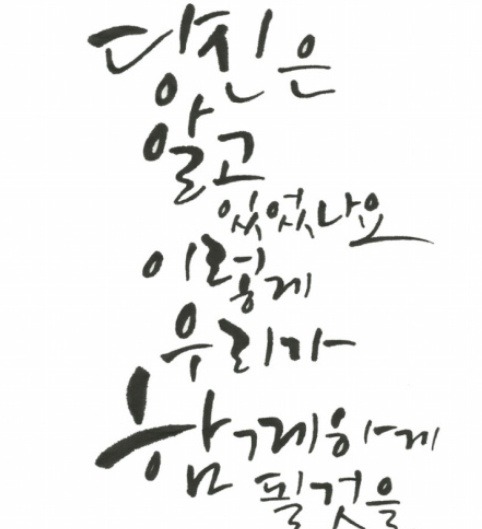 당신은
알고
있었나요
이렇게
우리가
함께하게
필것을